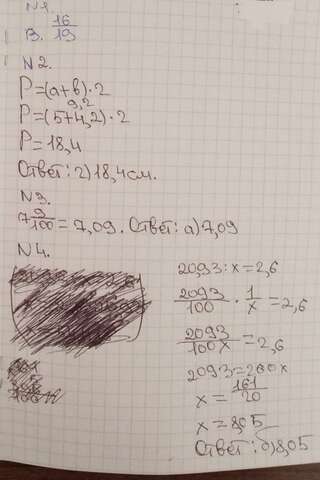 N1.
В. 16/19
N2.
P=(a+b)·2
9,2
P=(5+4,2)·2
P=18,4
Ответ: г) 18,4 см.
N3.
7 9/100 = 7,09. Ответ: а) 7,09
N4.
20,93:x=2,6
2093/100 · 1/x = 2,6
2093/100x = 2,6
2093=260x
x = 161/20
x = 8,05
Ответ: б) 8,05